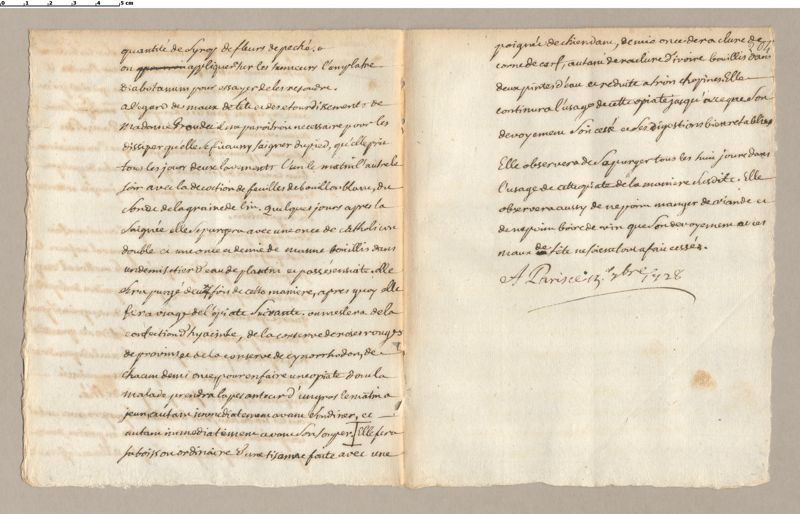 0 1 2 3 4 5 cm
quantité de syrop de fleurs de peché. &
on appliquer sur les tumeurs l'emplatre
diabotanum pour essayer de les resoudre.
a l'egard des maux de tete et des etourdissements de
Madame il me paroitroit necessaire pour les
dissiper qu'elle se fit aussy saigner du pied, qu'elle prit
tous les jours deux lavements l'un le matin l'autre le
soir avec la decoction de feuilles de bouillon blanc, de
de la graine de lin. quelques jours apres la
saignée elle se purgera avec une once de catholicon
double et une once et demie de manne bouillis dans
un demi stier d'eau de plantin et passés ensuite. elle
sera purgé deux fois de cette maniere, apres quoy elle
fera usage de l'opiate suivante. on meslera de la
confection d'hyacinte, de la conserve de roses rouges
de provins et de la conserve de cynorrhodon, de
chacun demi once, pour en faire une opiate dont la
malade prendra la pesanteur d'un gros le matin a
jeun, autant immediatement avant son diner, et
autant immediatement avant son souper. Elle fera
sa boisson ordinaire d'une tisanne faite avec une
poignée de chiendant, demie once de raclure de
corne de cerf, autant de raclure d'ivoire bouillis dans
deux pintes d'eau et reduite a trois chopines. Elle
continura l'usage de cette opiate jusqu'a ce que son
devoyement soit cessé et ses digestions bien retablies

Elle observera de se purger tous les huit jours dans
l'usage de cette opiate de la maniere susdite. Elle
observera aussy de ne point manger de viande et
de ne point boire de vin que son devoyement et ses
maux de tete ne soient tout a fait cessés.
A Paris ce 7bre 1728